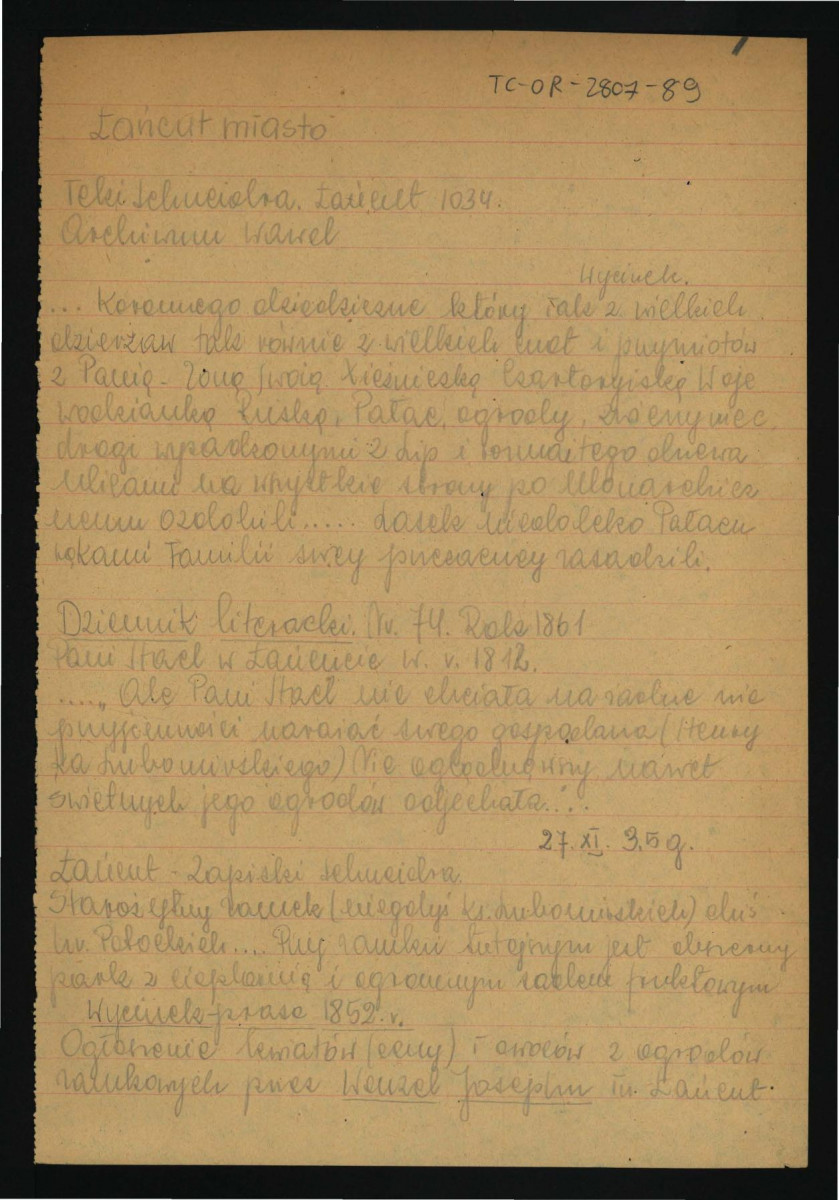 TC-OR-2807-89
Łańcut miasto
Teki Schneidra. Łańcut 1034.
Archiwum Wawel
Wycinek.
... Koronnego dziedziczne który tak z wielkich
dzierżaw tak równie z wielkich cnot i przymiotów
z Panią - Żoną swoią Xiężniczką Czartoryiską Woje
wodzianką Ruską, Pałac, ogrody,
drogi wysadzonymi z Lip i rozmaitego drzewa
ulicami na wszystkie strony po Monarchicz
nemu ozdobili..... Lasek niedaleko Pałacu
rękami Familii swey zasadzili.
Dziennik literacki. Nr. 74. Rok 1861
Pani Stael w Łańcucie w. r. 1812.
....„ Ale Pani Stael nie chciała na żadne nie
przyjemności narażać swego gospodarza (Henry
ka Lubomirskiego) Nie oglądnąwszy nawet
świetnych jego ogrodów odjechała...
27. XI. 35 g.
Łańcut - Zapiski Schneidra.
Starożytny zamek (niegdyś Ks. Lubomirskich) dziś
hr. Potockich.... Przy zamku tutejszym jest obszerny
park z cieplarnią i ogromnym sadem fruktowym
Wycinek prasc 1852. r.
Ogłoszenie kwiatów (ceny) i owoców z ogrodów
zamkowych przez Wenzel Joseph in Łańcut.